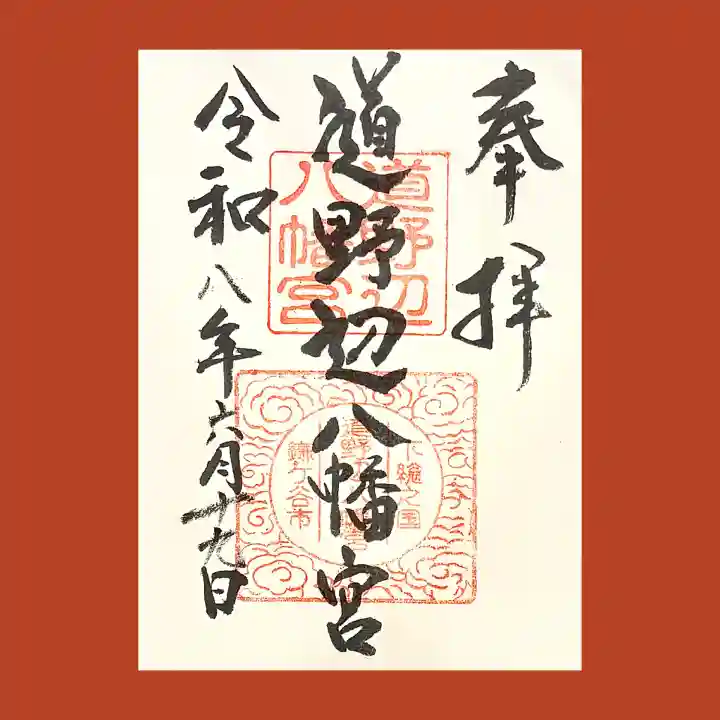 奉拝
道野辺八幡宮
令和八年六月十九日
道野辺
八幡宮
下總之国
道野辺八幡宮
鎌ケ谷市